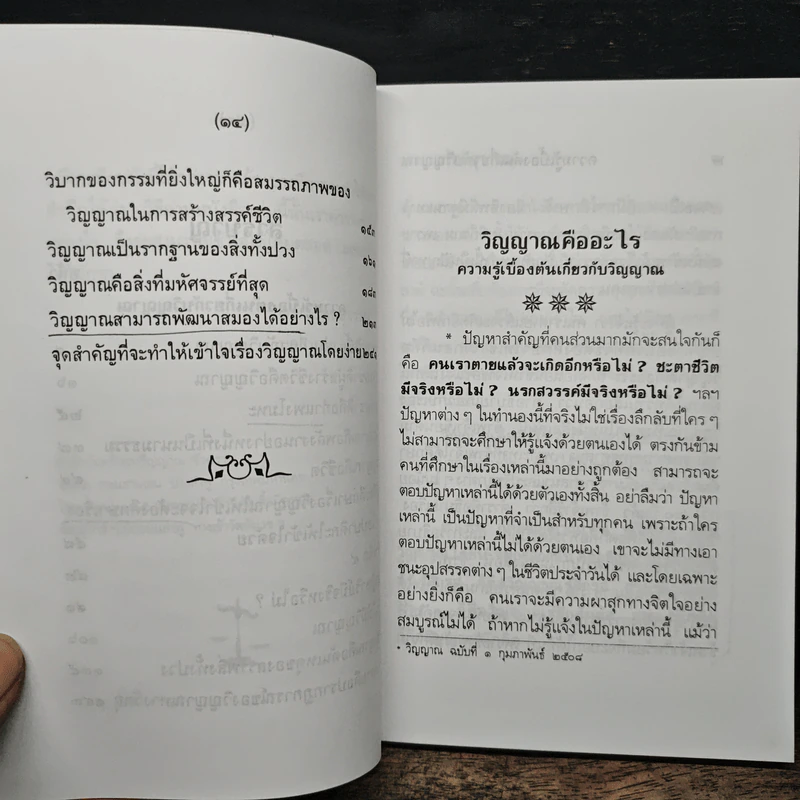 (๑๔)
วิบากของกรรมที่ยิ่งใหญ่ก็คือสมรรถภาพของ
วิญญาณในการสร้างสรรค์ชีวิต ๑๕๓
วิญญาณเป็นรากฐานของสิ่งทั้งปวง ๑๖๑
วิญญาณคือสิ่งที่มหัศจรรย์ที่สุด ๑๘๓
วิญญาณสามารถพัฒนาสมองได้อย่างไร ? ๒๑๓
จุดสำคัญที่จะทำให้เข้าใจเรื่องวิญญาณโดยง่าย๒๔๑
วิญญาณคืออะไร
ความรู้เบื้องต้นเกี่ยวกับวิญญาณ
* ปัญหาสำคัญที่คนส่วนมากมักจะสนใจกันก็
คือ คนเราตายแล้วจะเกิดอีกหรือไม่ ? ชะตาชีวิต
มีจริงหรือไม่ ? นรกสวรรค์มีจริงหรือไม่ ? ฯลฯ
ปัญหาต่าง ๆ ในทำนองนี้ที่จริงไม่ใช่เรื่องลึกลับที่ใคร ๆ
ไม่สามารถจะศึกษาให้รู้แจ้งด้วยตนเองได้ ตรงกันข้าม
คนที่ศึกษาในเรื่องเหล่านี้มาอย่างถูกต้อง สามารถจะ
ตอบปัญหาเหล่านี้ได้ด้วยตัวเองทั้งสิ้น อย่าลืมว่า ปัญหา
เหล่านี้ เป็นปัญหาที่จำเป็นสำหรับทุกคน เพราะถ้าใคร
ตอบปัญหาเหล่านี้ไม่ได้ด้วยตนเอง เขาจะไม่มีทางเอา
ชนะอุปสรรคต่าง ๆ ในชีวิตประจำวันได้ และโดยเฉพาะ
อย่างยิ่งก็คือ คนเราจะมีความผาสุกทางจิตใจอย่าง
สมบูรณ์ไม่ได้ ถ้าหากไม่รู้แจ้งในปัญหาเหล่านี้ แม้ว่า
* วิญญาณ ฉบับที่ ๑ กุมภาพันธ์ ๒๕๐๘